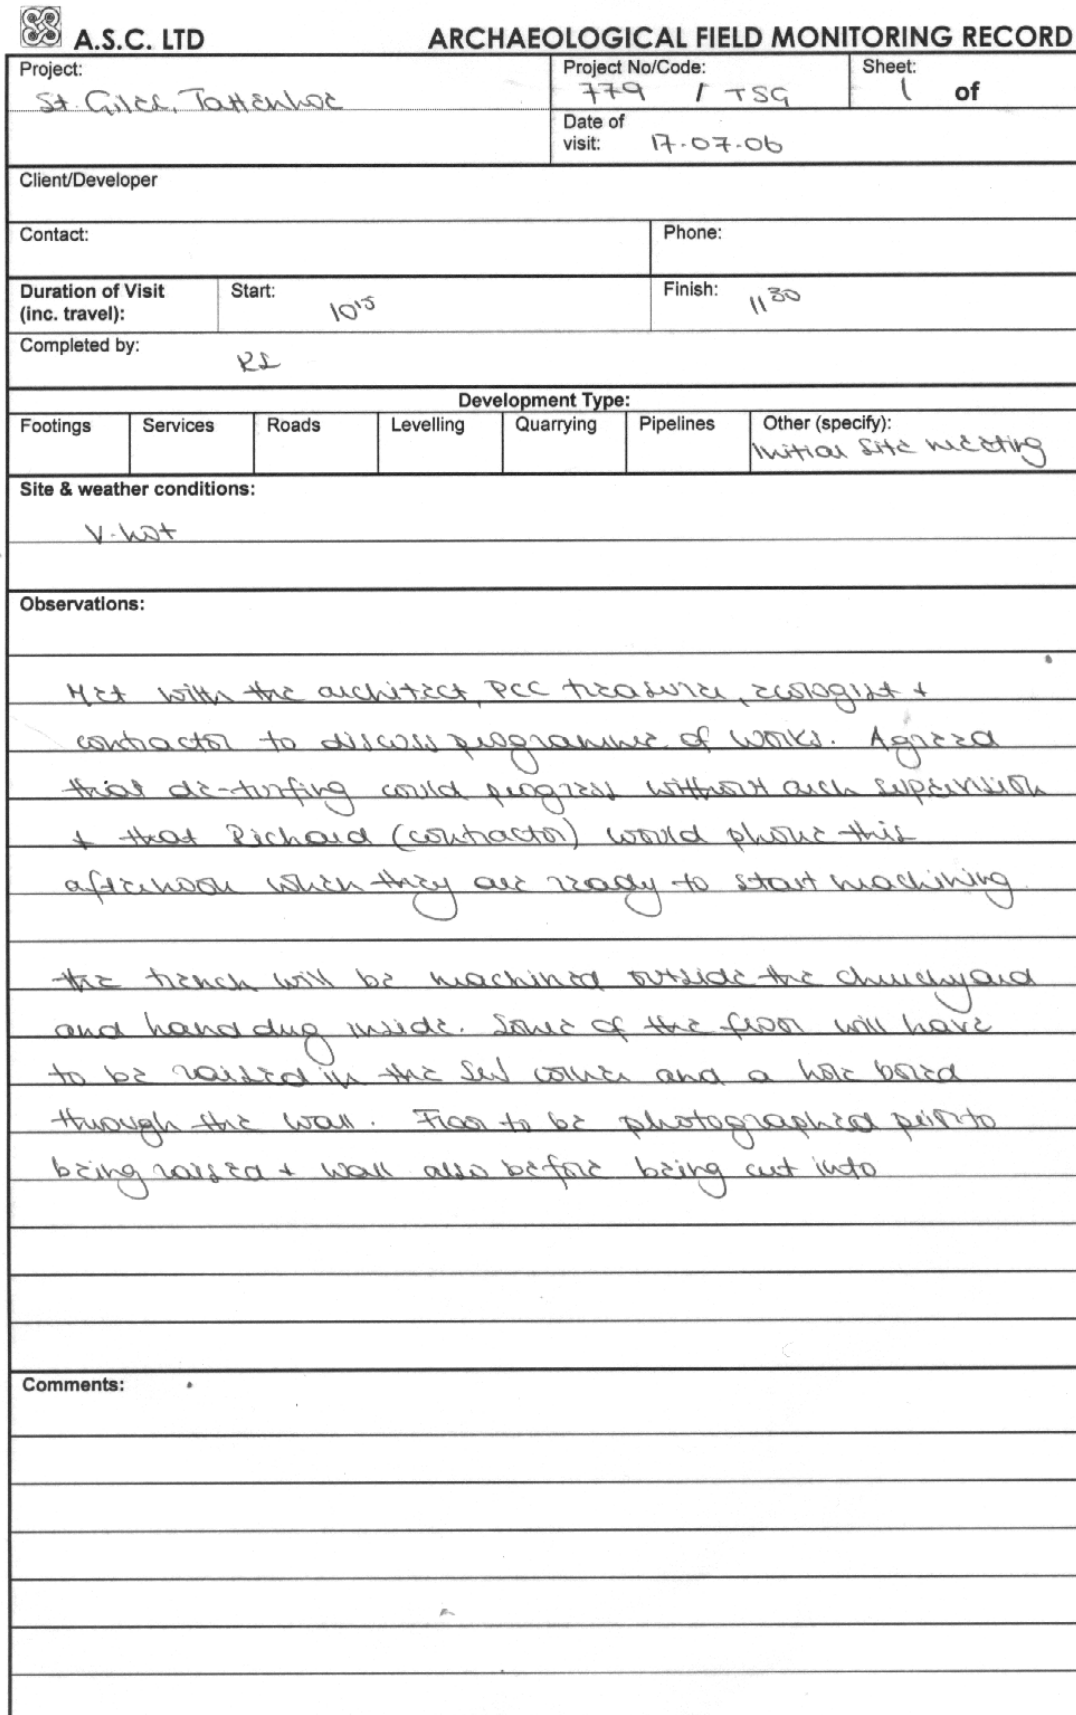 A.S.C. LTD ARCHAEOLOGICAL FIELD MONITORING RECORD
Project: Project No/Code: Sheet:
St. Giles, Tattenhoe 779 / TSG 1 of
Date of
visit: 17.07.06
Client/Developer
Contact: Phone:
Duration of Visit Start: Finish:
(inc. travel): 10 15 11 30
Completed by:
RL
Development Type:
Footings Services Roads Levelling Quarrying Pipelines Other (specify):
Initial site meeting
Site & weather conditions:
V. hot
Observations:
Met with the architect, PCC treasurer, ecologist +
contractor to discuss programme of works. Agreed
that de-turfing could progress without arch supervision
+ that Richard (contractor) would phone this
afternoon when they are ready to start machining.
the trench will be machined outside the churchyard
and hand dug inside. Some of the floor will have
to be raised in the SW corner and a hole bored
through the wall. Floor to be photographed prior to
being raised + wall also before being cut into
Comments: